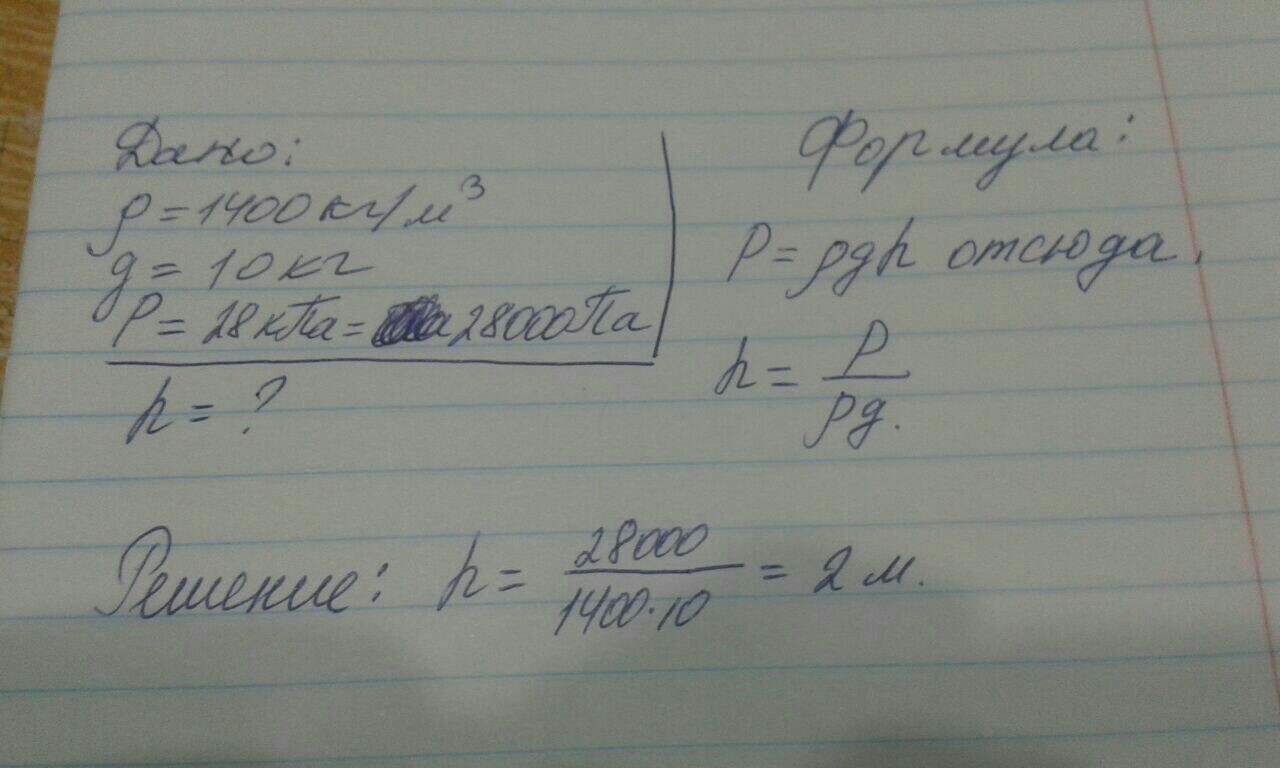 Дано:
ρ = 1400 кг/м³
g = 10 кг
P = 28 кПа = 28000 Па
h = ?
Формула:
P = ρgh отсюда,
h = P
ρg.
Решение: h = 28000
1400·10
= 2 м.